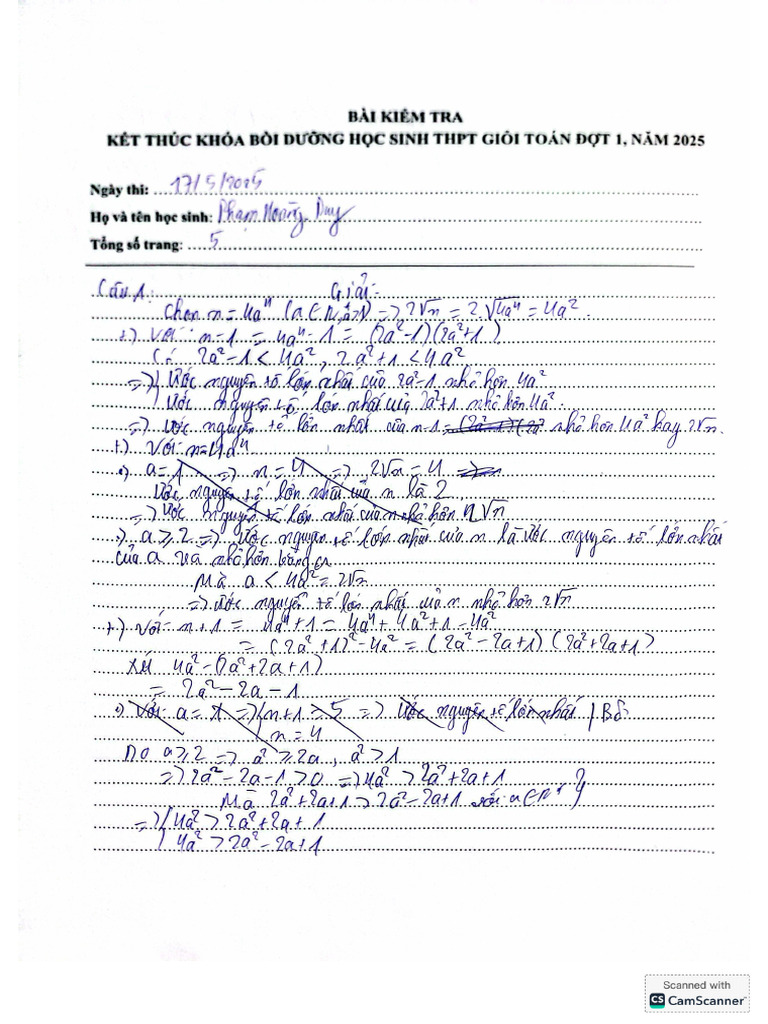 BÀI KIỂM TRA
KẾT THÚC KHÓA BỒI DƯỠNG HỌC SINH THPT GIỎI TOÁN ĐỢT 1, NĂM 2025
Ngày thi: 17/5/2025
Họ và tên học sinh: Phạm Hoàng Duy
Tổng số trang: 5
Câu 1: Giải:
Chọn n = 4a⁴ (a ∈ N, a>1) => 2√n = 2.√4a⁴ = 4a².
+) Với n-1 = 4a⁴-1 = (2a²-1)(2a²+1)
Có 2a²-1 < 4a², 2a²+1 < 4a²
=> Ước nguyên tố lớn nhất của 2a²-1 nhỏ hơn 4a²
Ước nguyên tố lớn nhất của 2a²+1 nhỏ hơn 4a².
=> Ước nguyên tố lớn nhất của n-1 = (2a²-1)(2a² nhỏ hơn 4a² hay 2√n.
+) Với n=4a⁴
a=1 => n=4 => 2√n = 4
Ước nguyên tố lớn nhất của n là 2
=> Ước nguyên tố lớn nhất của n nhỏ hơn 2√n
a ≥ 2 => Ước nguyên tố lớn nhất của n là ước nguyên tố lớn nhất
của a và nhỏ hơn bằng a
Mà a < 4a² = 2√n
=> Ước nguyên tố lớn nhất của n nhỏ hơn 2√n
+) Với n+1 = 4a⁴+1 = 4a⁴+4a²+1-4a²
= (2a²+1)²-4a² = (2a²-2a+1)(2a²+2a+1)
Xét 4a²-(2a²+2a+1)
= 2a²-2a-1
Với a = 1 => n+1 = 5 => Ước nguyên tố lớn nhất | Bỏ
n = 4
Do a≥2 => a² ≥ 2a, a²>1
=> 2a²-2a-1>0 => 4a² > 2a²+2a+1
Mà 2a²+2a+1 > 2a²-2a+1 với a∈N*
=> 4a² > 2a²+2a+1
4a² > 2a²-2a+1
Scanned with
CS CamScanner